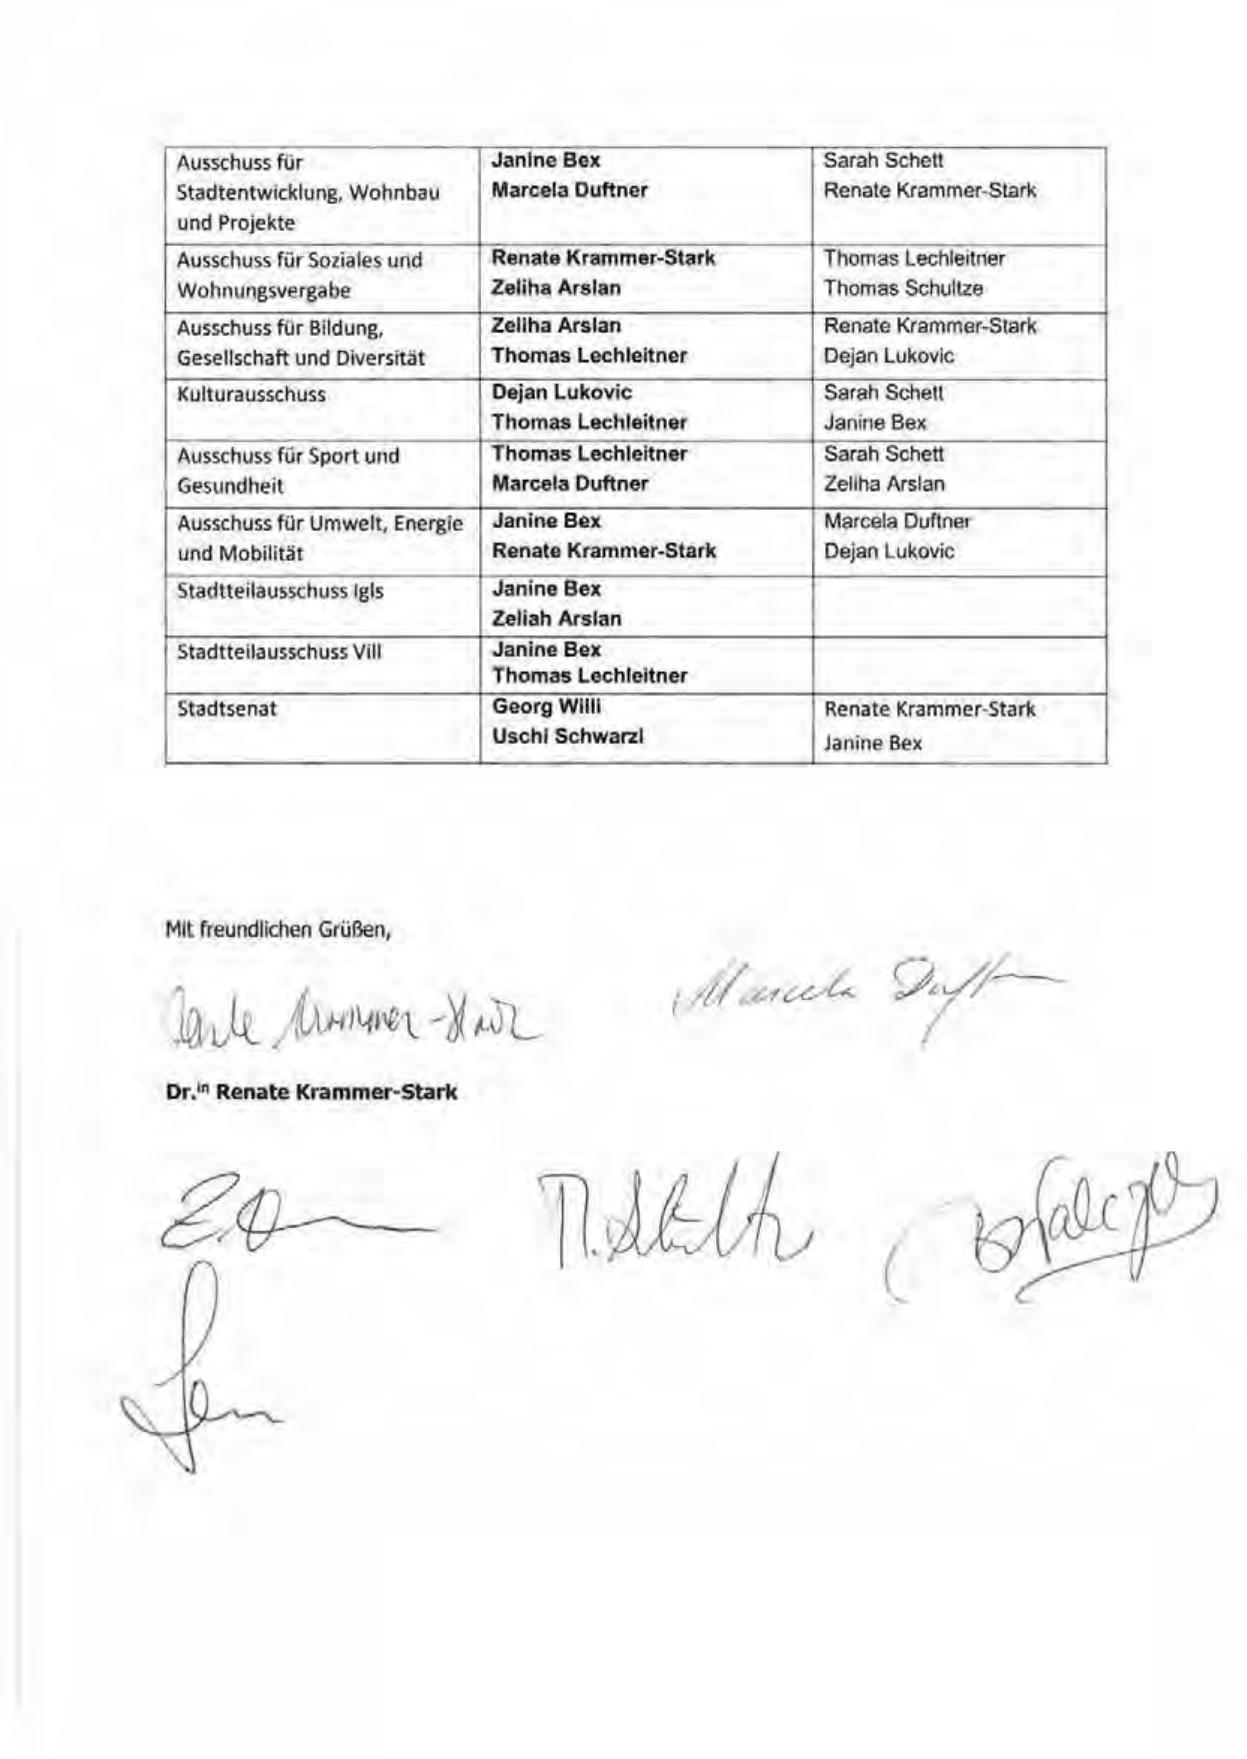 Ausschuss für
Stadtentwicklung, Wohnbau
und Projekte
Janine Bex
Marcela Duftner
Sarah Schett
Renate Krammer-Stark
Ausschuss für Soziales und
Wohnungsvergabe
Renate Krammer-Stark
Zeliha Arslan
Thomas Lechleitner
Thomas Schultze
Ausschuss für Bildung,
Gesellschaft und Diversität
Zeliha Arslan
Thomas Lechleitner
Renate Krammer-Stark
Dejan Lukovic
Kulturausschuss
Dejan Lukovic
Thomas Lechleitner
Sarah Schett
Janine Bex
Ausschuss für Sport und
Gesundheit
Thomas Lechleitner
Marcela Duftner
Sarah Schett
Zeliha Arslan
Ausschuss für Umwelt, Energie
und Mobilität
Janine Bex
Renate Krammer-Stark
Marcela Duftner
Dejan Lukovic
Stadtteilausschuss Igls
Janine Bex
Zeliah Arslan
Stadtteilausschuss Vill
Janine Bex
Thomas Lechleitner
Stadtsenat
Georg Willi
Uschi Schwarzl
Renate Krammer-Stark
Janine Bex
Mit freundlichen Grüßen,
Marcela
Krammer-Stark
Dr.in Renate Krammer-Stark